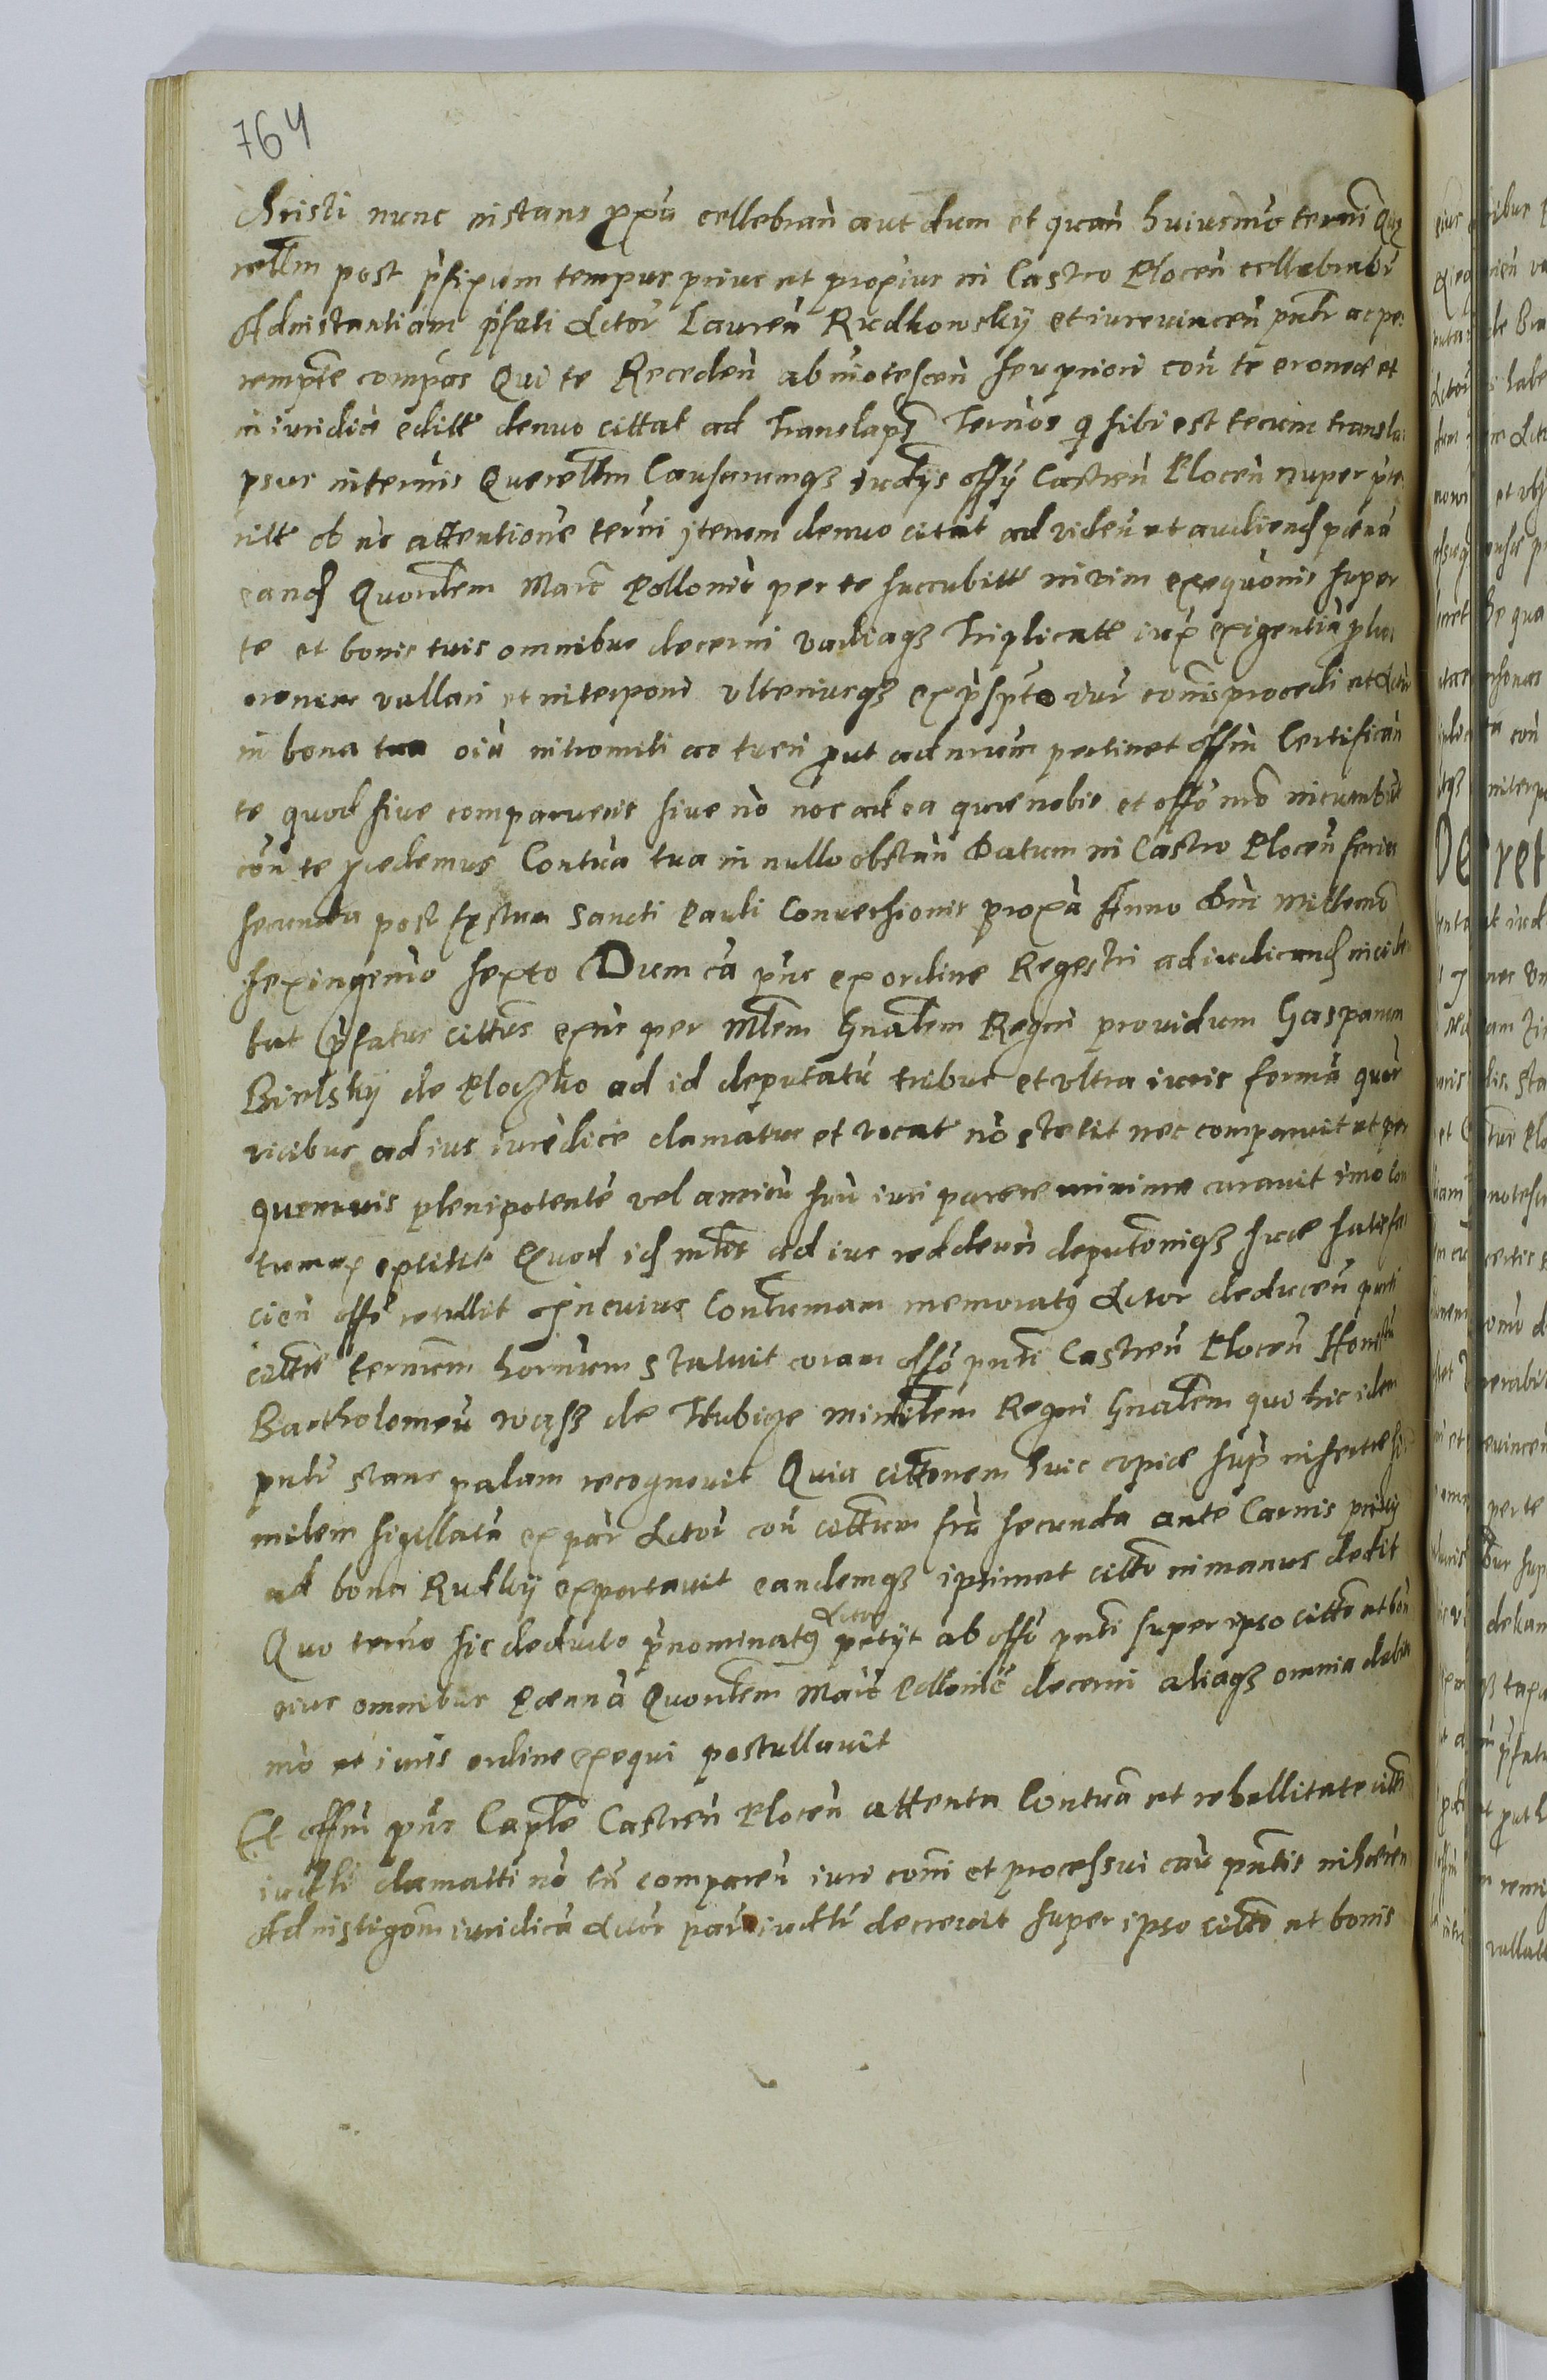 764
Christi nunc instans proxu cellebran aut dum et quan huiusmo termi Que
rellm post pfixum tempus prius et propius in Castro Plocen cellebrabr
Ad instantiam pfati Actor Lauren Rudkowsky et iurevincen pntr ac pe
rempte compas Qui te Receden ab inotescen seu priori con te
in iuridice editt denuo cittat ad translaps termos q sibi est tecum transla
psus in termis Querellm Causarumqz iudys offy Castren Plocen nuper pre
ritt ob no attentione termi itenem denuo citat ad viden et audiend pena
eand Quordem Marc Pollonic per te succubitt in vim exequonis super
te et bonis tuis omnibus decerni vadiaqz triplicatt iux exigentia
vallari et interponi ulteriusqz ex pspto iur comis procedi et Actor
in bona tua oiu intromitti ac tueri put ad nrum pertinet offm Certifican
te quod sive comparueris sive no nos ad ea quae nobis et offo nro incumbut
con te pcedemus Contua tua in nullo obstan Datum in Castro Plocen feria
secunda post festum Sancti Pauli Conversionis proxa Anno Dni Millemo
sexingemo sexto Dum ca pns ex ordine Regestri ad iudicand incide
bat pfatus cittus exns per Mlem Gnalem Regni providum Gasparum
Bielsky de Ploczko ad id deputatu tribus et ultra iuris forma quar
vicibus ad ius iuredice clamatus et vocat no stetit nec comparuit et per
quemvis plenipotente vel amicu suu iuri parere minime curavit imo con
tumax extitit Quod id mlis ad ius redden deputonisqz suae satisfa
cien offo retullit In cuius Contumam memoratq Actor deducen parti
citte termem hornum Statuit coram offo pnti Castren Plocen Honestu
Bartholomeu Wąsz de Hubicze ministlem Regni Gnalem qui hic idem
pntr stans palam recognovit Quia cittonem huic copiae sup insertae si
milem sigillata ex par Actor con cittum fria secunda ante Carnis privy
ad bona Rudky exportavit eandemqz ipsimet citto in manus dedit
Quo termo sic deducto pnominatq Actor petyt ab offo pnti super ipso citto et bon
eius omnibus Paenna Quordem Marc Pollonic decerni aliaqz omnia debi
mo et iuris ordine exequi postullavit
Et offm pns Captle Castren Plocen attenta Contua et rebellitate citti
iudtr clamatti no tn comparen iuri comi et processui cau pntis inhaeren
Ad instigom iuridica Actor par iudtr decrevit super ipso citto et bonis